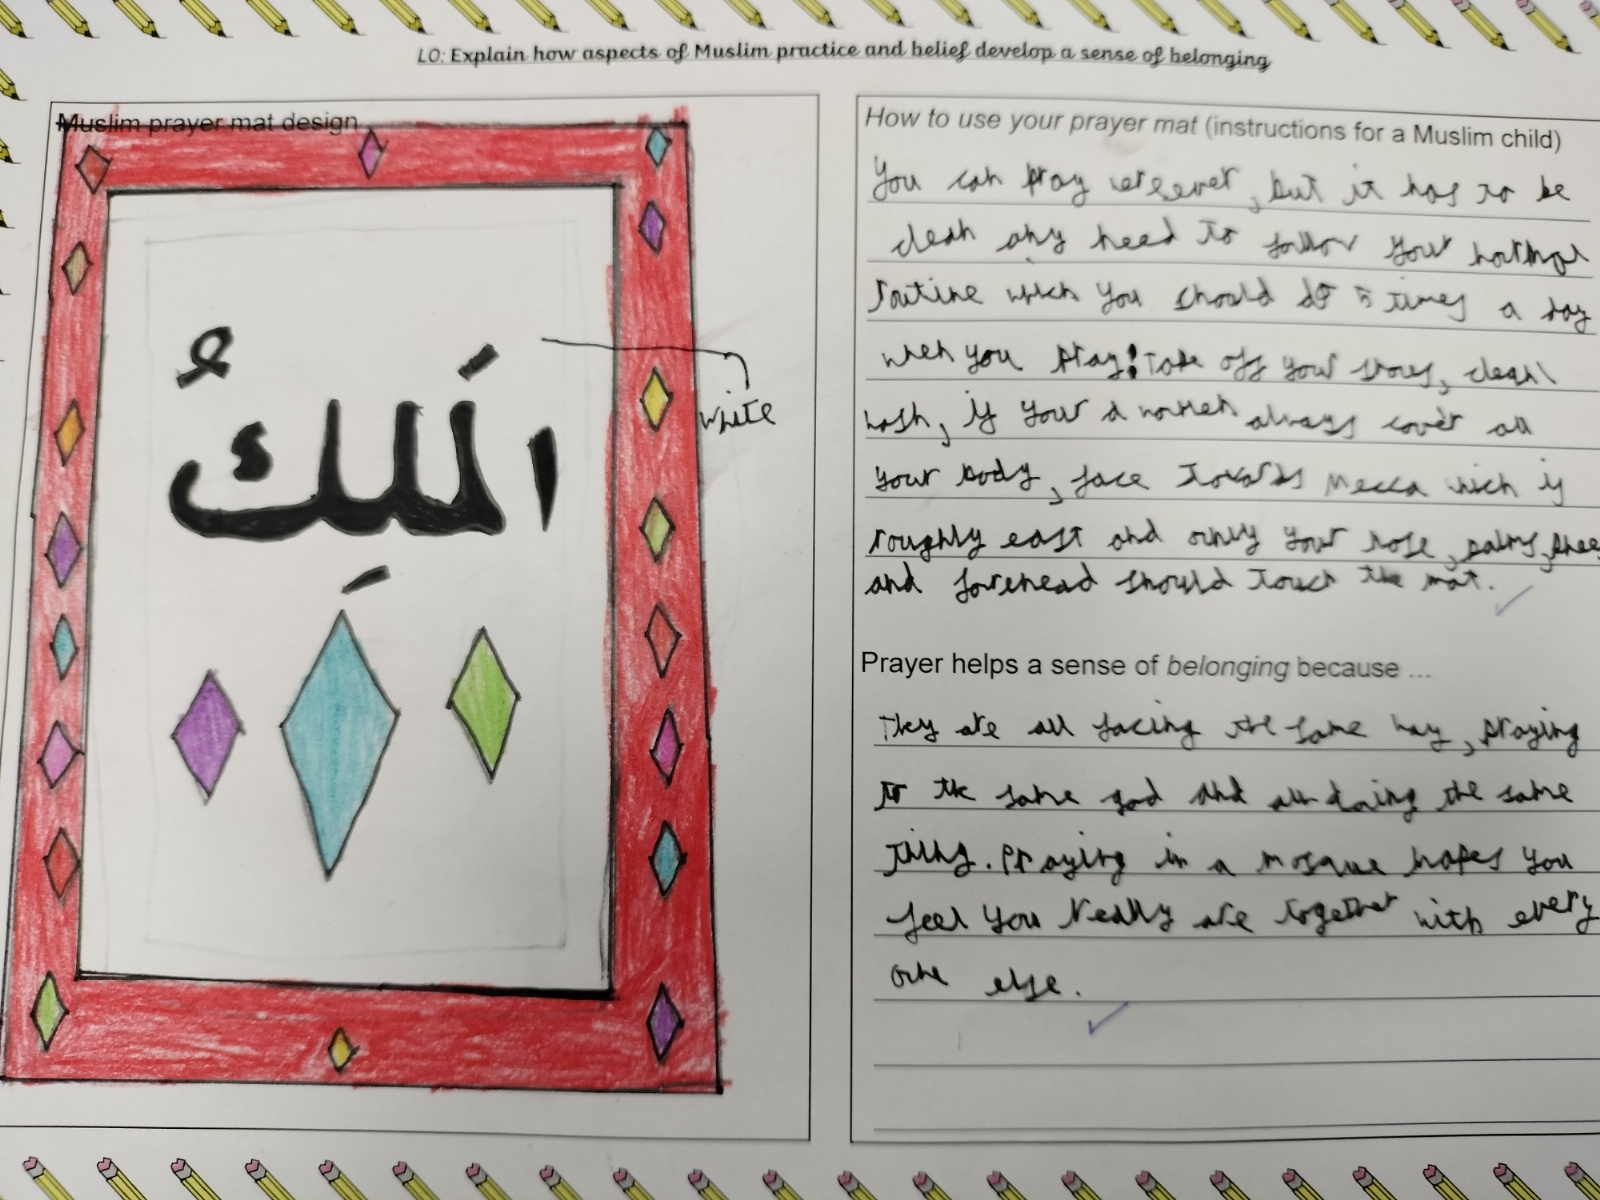 LO: Explain how aspects of Muslim practice and belief develop a sense of belonging
Muslim prayer mat design
المَلِكُ
white
How to use your prayer mat (instructions for a Muslim child)
You can pray , but it has to be
clean need to follow your
routine which you should do 5 times a day
when you pray! Take off your shoes, clean
wash, if your a women always cover all
your body, face towards Mecca wich is
roughly east and only your nose, palms,
and forehead should touch the mat.
Prayer helps a sense of belonging because ...
They are all facing the same way, praying
to the same god and all doing the same
thing. Praying in a mosque you
feel you really are together with every
one else.